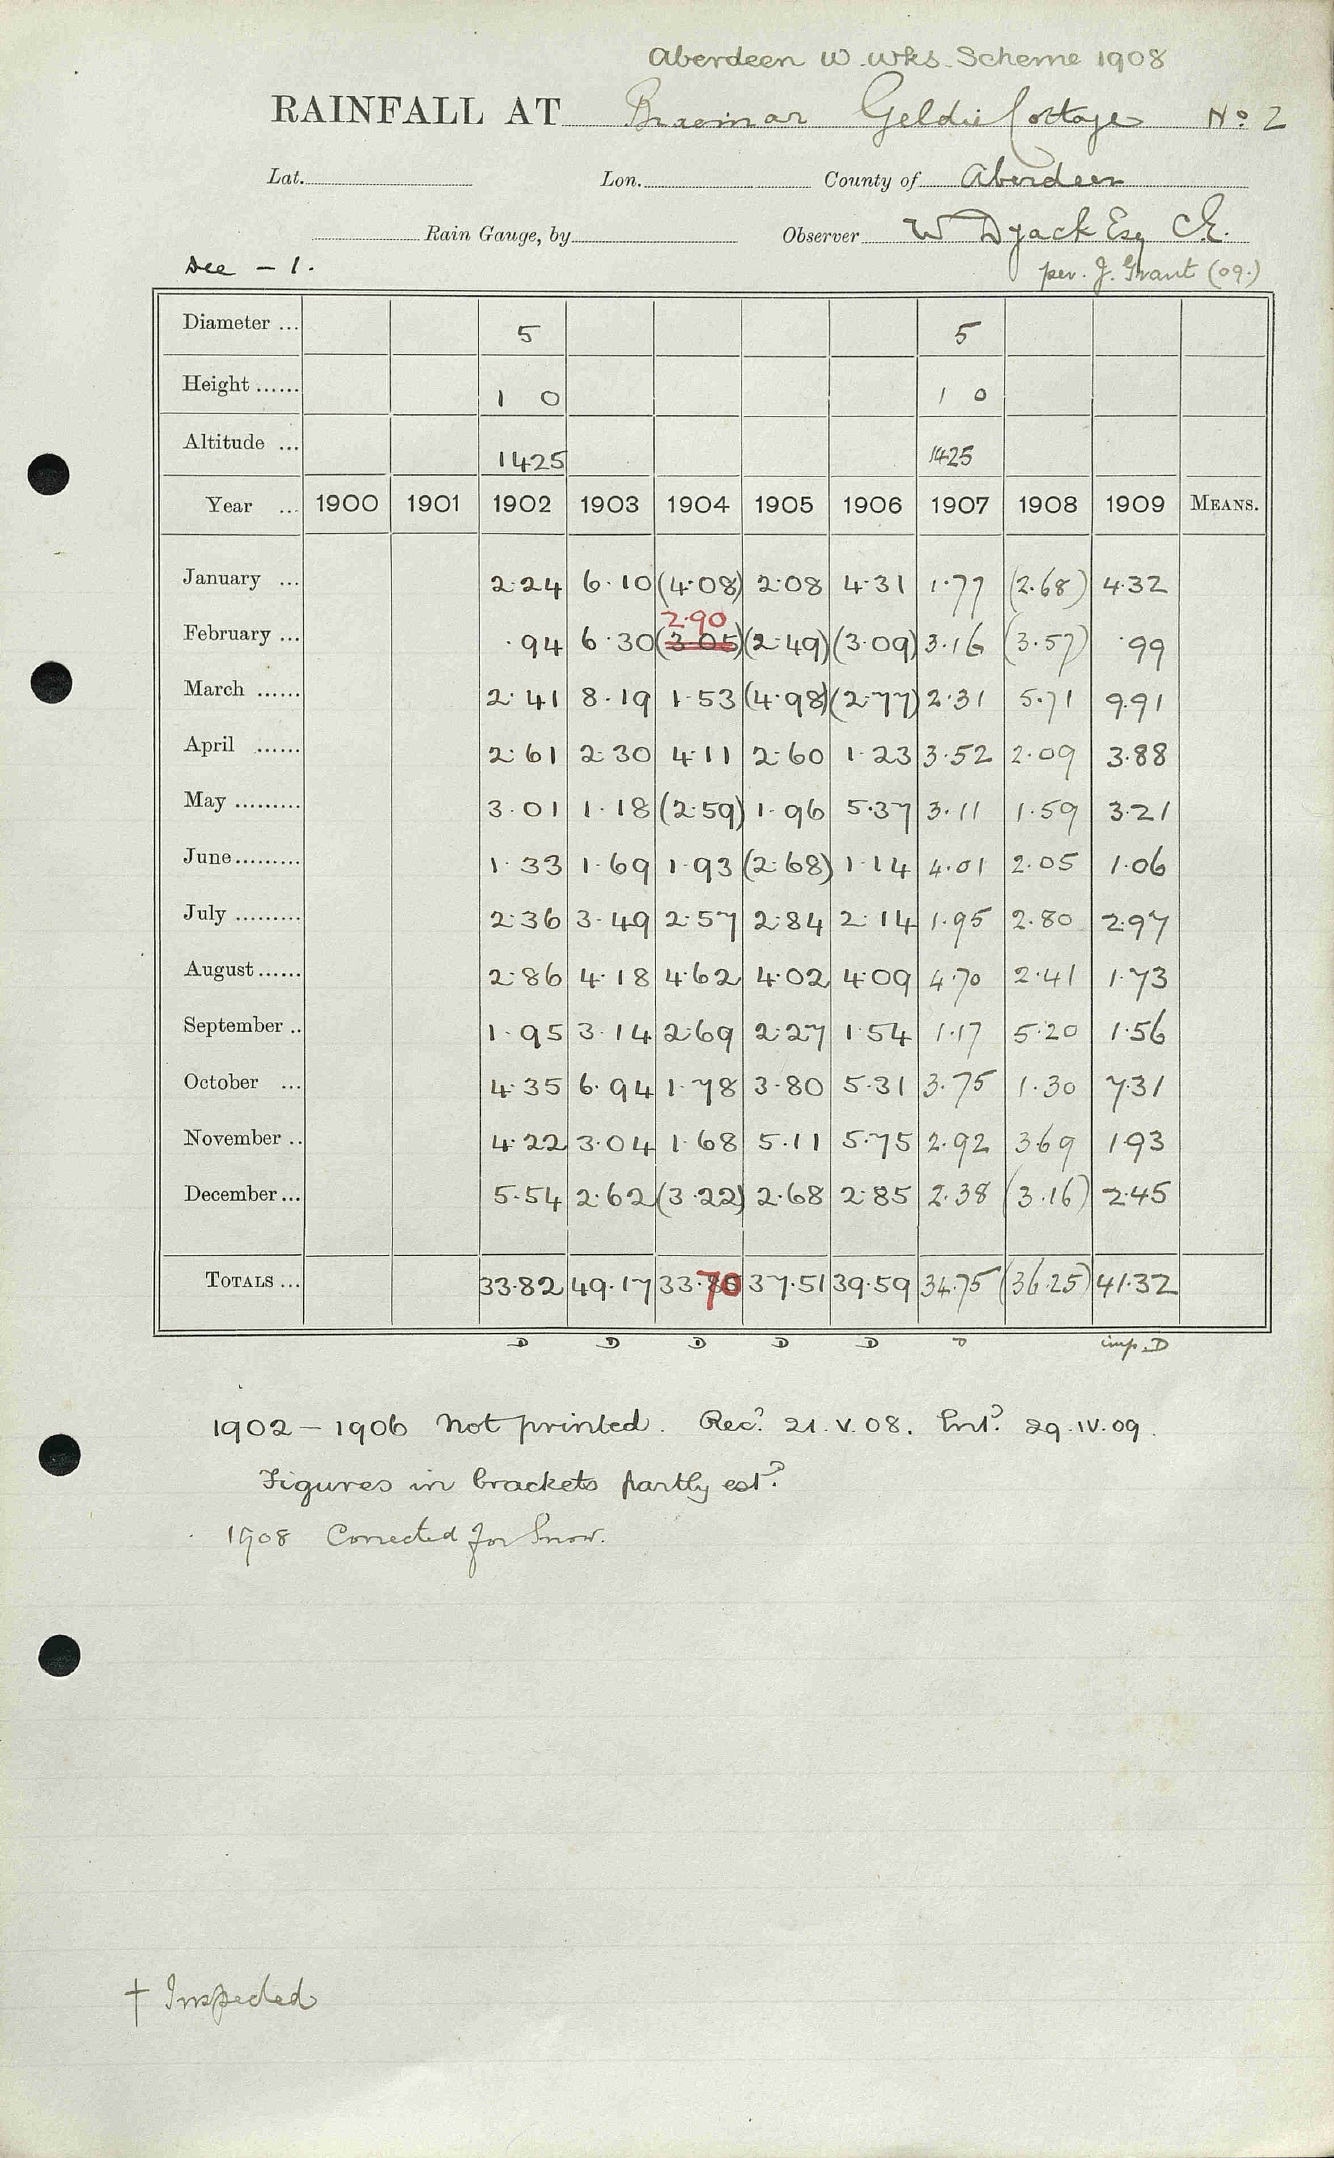 Aberdeen W. Wks. Scheme 1908
RAINFALL AT Braemar Geldie Cottage No 2
Lat. Lon. County of Aberdeen
Rain Gauge, by Observer W Dyack Esq C.E.
Dee - 1. per. J. Grant (09.)
Diameter ... 5 5
Height ...... 1 0 1 0
Altitude ... 1425 1425
Year ... 1900 1901 1902 1903 1904 1905 1906 1907 1908 1909 MEANS.
January ... 2.24 6.10 (4.08) 2.08 4.31 1.77 (2.68) 4.32
2.90
February ... .94 6.30 (3.05) (2.49) (3.09) 3.16 (3.57) .99
March ...... 2.41 8.19 1.53 (4.98) (2.77) 2.31 5.71 9.91
April ...... 2.61 2.30 4.11 2.60 1.23 3.52 2.09 3.88
May ......... 3.01 1.18 (2.59) 1.96 5.37 3.11 1.59 3.21
June......... 1.33 1.69 1.93 (2.68) 1.14 4.01 2.05 1.06
July ......... 2.36 3.49 2.57 2.84 2.14 1.95 2.80 2.97
August...... 2.86 4.18 4.62 4.02 4.09 4.70 2.41 1.73
September .. 1.95 3.14 2.69 2.27 1.54 1.17 5.20 1.56
October ... 4.35 6.94 1.78 3.80 5.31 3.75 1.30 7.31
November .. 4.22 3.04 1.68 5.11 5.75 2.92 3.69 1.93
December ... 5.54 2.62 (3.22) 2.68 2.85 2.38 (3.16) 2.45
TOTALS ... 33.82 49.17 33.70 37.51 39.59 34.75 (36.25) 41.32
D D D D D D imp. D
1902 - 1906 Not printed. Recd. 21.V.08. Entd. 29.IV.09.
Figures in brackets partly estd.
1908 Corrected for Snow.
† Inspected